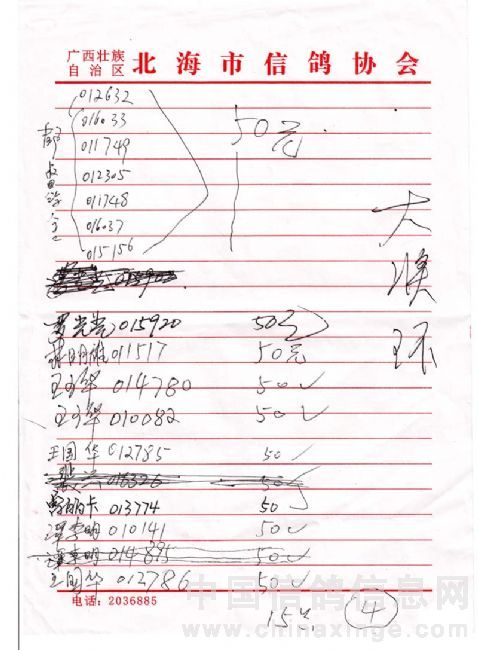 广西壮族
自治区 北海市信鸽协会
012632
016033
011749
012305
011748
016037
015156
50元
大
环
015920 50
011517 50元
014780 50
010082 50
王国华 012785 50
016326 50
013774 50
谭李明 010141 50
谭李明 014895 50
王国华 012786 50
电话：2036885
15
4
中国信鸽信息网
www.chinaxinge.com